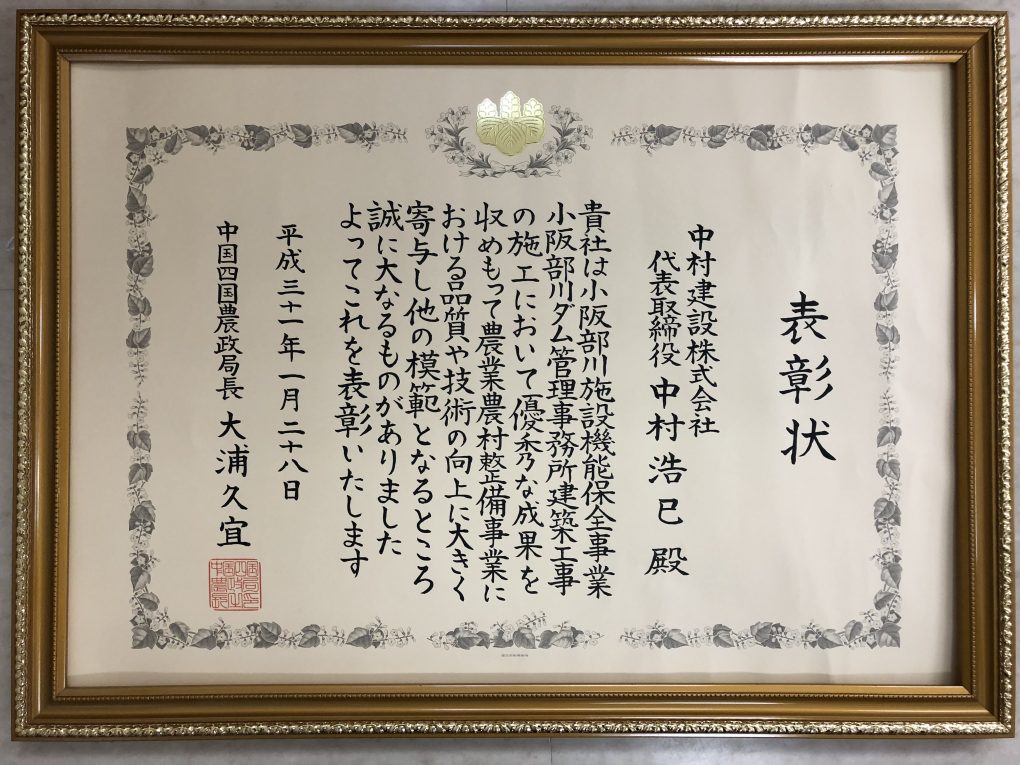 表彰状
中村建設株式会社
代表取締役 中村浩巳 殿
貴社は小阪部川施設機能保全事業
小阪部川ダム管理事務所建築工事
の施工において優秀な成果を
収めもって農業農村整備事業に
おける品質や技術の向上に大きく
寄与し他の模範となるところ
誠に大なるものがありました
よってこれを表彰いたします
平成三十一年一月二十八日
中国四国農政局長 大浦久宜